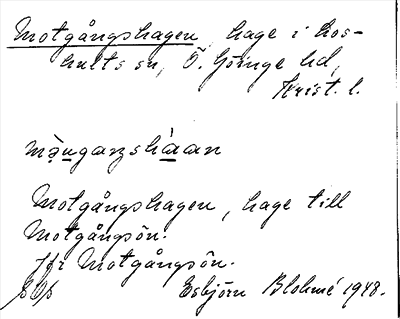 Motgångshagen, hage i Hos-
hults sn, Ö. Göinge hd,
Krist. l.
Motgångshagen, hage till
Motgångsön.
Jfr Motgångsön.
Esbjörn Blohmé 1948.